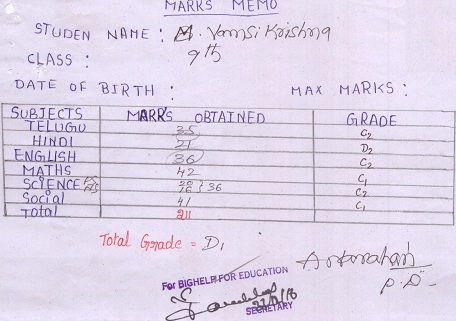 MARKS MEMO
STUDEN NAME : M. Vamsi Krishna
CLASS : 9th
DATE OF BIRTH : MAX MARKS :
SUBJECTS MARKS OBTAINED GRADE
TELUGU 35 C2
HINDI 21 D2
ENGLISH 36 C2
MATHS 42 C1
SCIENCE PS NS 20 16 } 36 C2
Social 41 C1
Total 211
Total Grade = D1
For BIGHELP FOR EDUCATION
SECRETARY